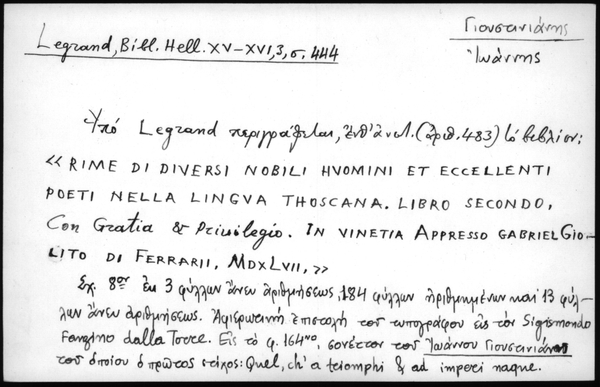 Γιουστινιάνης
Ἰωάννης
Legrand, Bibl. Hell. XV–XVI, 3, σ. 444
Ὑπὸ Legrand περιγράφεται, ἔνθ' ἀνωτ. (ἀριθ. 483) τὸ βιβλίον:
« RIME DI DIVERSI NOBILI HVOMINI ET ECCELLENTI
POETI NELLA LINGVA THOSCANA. LIBRO SECONDO,
Con Gratia & Priuilegio. IN VINETIA APPRESSO GABRIEL GIO-
LITO DI FERRARII, MDXLVII, »
Σχ. 8ον ἐκ 3 φύλλων ἄνευ ἀριθμήσεως, 184 φύλλων ἠριθμημένων καὶ 13 φύλ-
λων ἄνευ ἀριθμήσεως. Ἀφιερωτικὴ ἐπιστολὴ τοῦ τυπογράφου εἰς τὸν Sigismondo
Fanzino dalla Torre. Εἰς τὸ φ. 164νο, σονέττον τοῦ Ἰωάννου Γιουστινιάνη
τοῦ ὁποίου ὁ πρῶτος στίχος: Quel, ch' a triomphi & ad imperi naque.